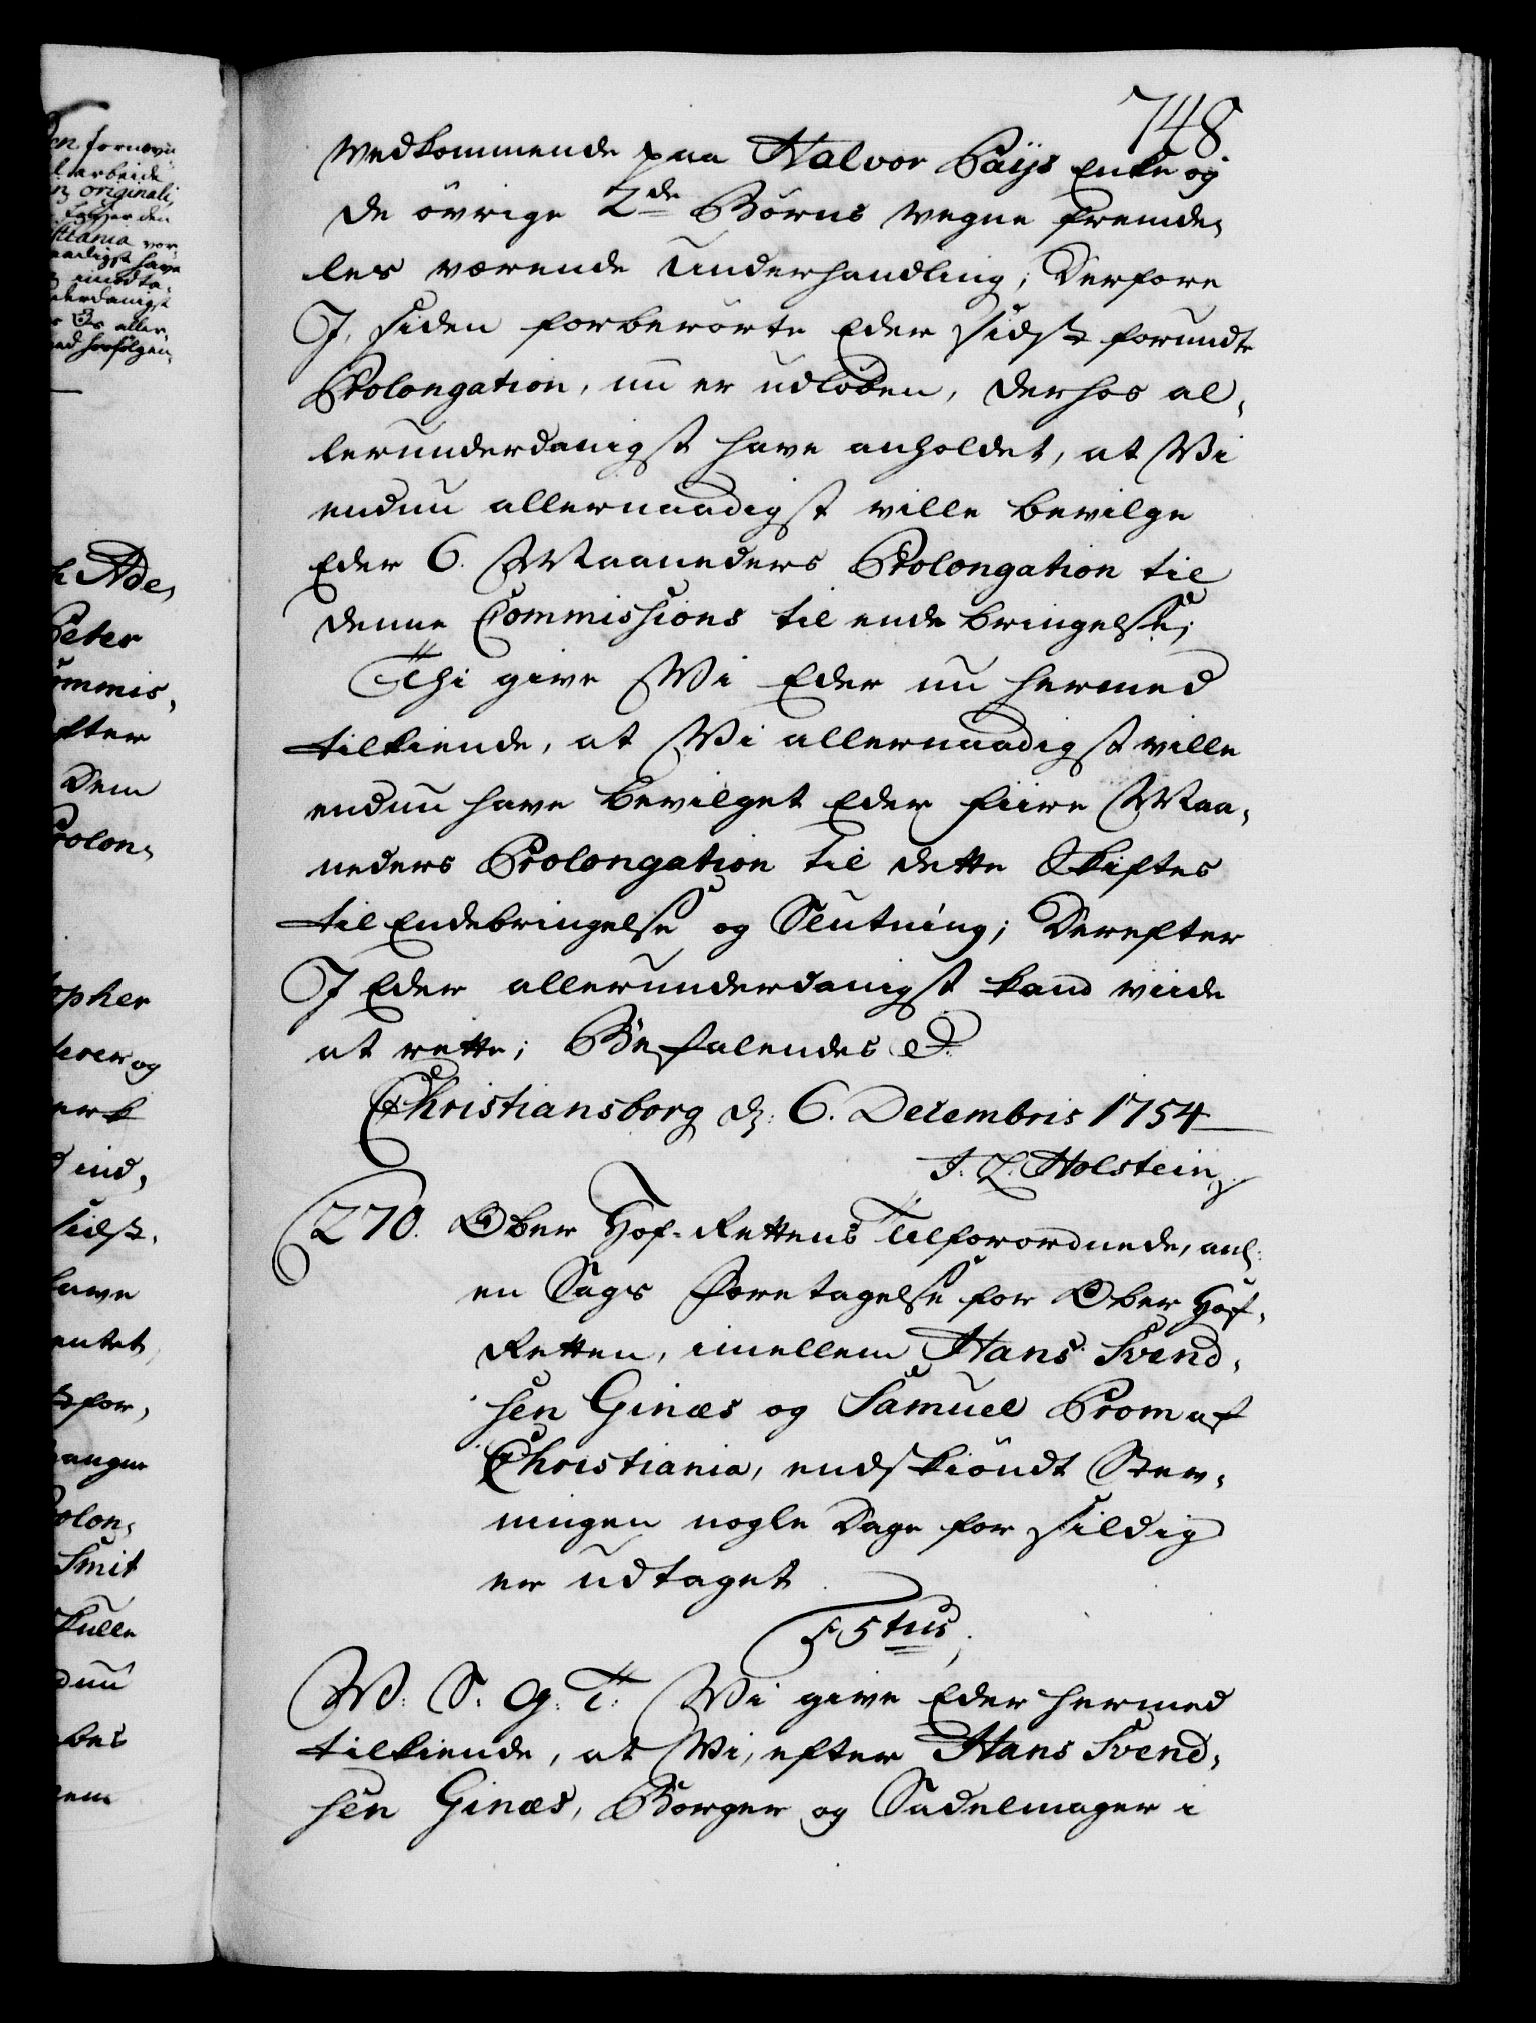 748
vedkommende paa Halvor Paijs Enke og
de övrige 2de Börns vegne fremde,
les værende Underhandling; Derfore
I, siden forberörte Eder sidst forundte
Prolongation, nu er udlöben, derhos al,
lerunderdanigst have anholdet, at Vi
endnu allernaadigst ville bevilge
Eder 6. Maaneders Prolongation til
denne Commissions til ende bringelse;
Thi give Vi Eder nu hermed
tilkiende, at Vi allernaadigst ville
endnu have bevilget Eder fiire Maa,
neders Prolongation til dette Skiftes
til Endebringelse og Slutning; Derefter
I Eder allerunderdanigst kand viide
at rette; Befalendes &.
Christiansborg d: 6. Decembris 1754
J. L. Holstein
270. Ober Hof-Rettens Tilforordnede, anl:
en Sags Foretagelse for Ober Hof,
Retten, imellem Hans Svend,
sen Ginæs og Samuel Prom af
Christiania, endskiöndt Stev,
ningen nogle Dage for sildig
er udtaget
F5tus
V. S. G. T. Vi give Eder hermed
tilkiende, at Vi, efter Hans Svend,
sen Ginæs, Borger og Sadelmager i